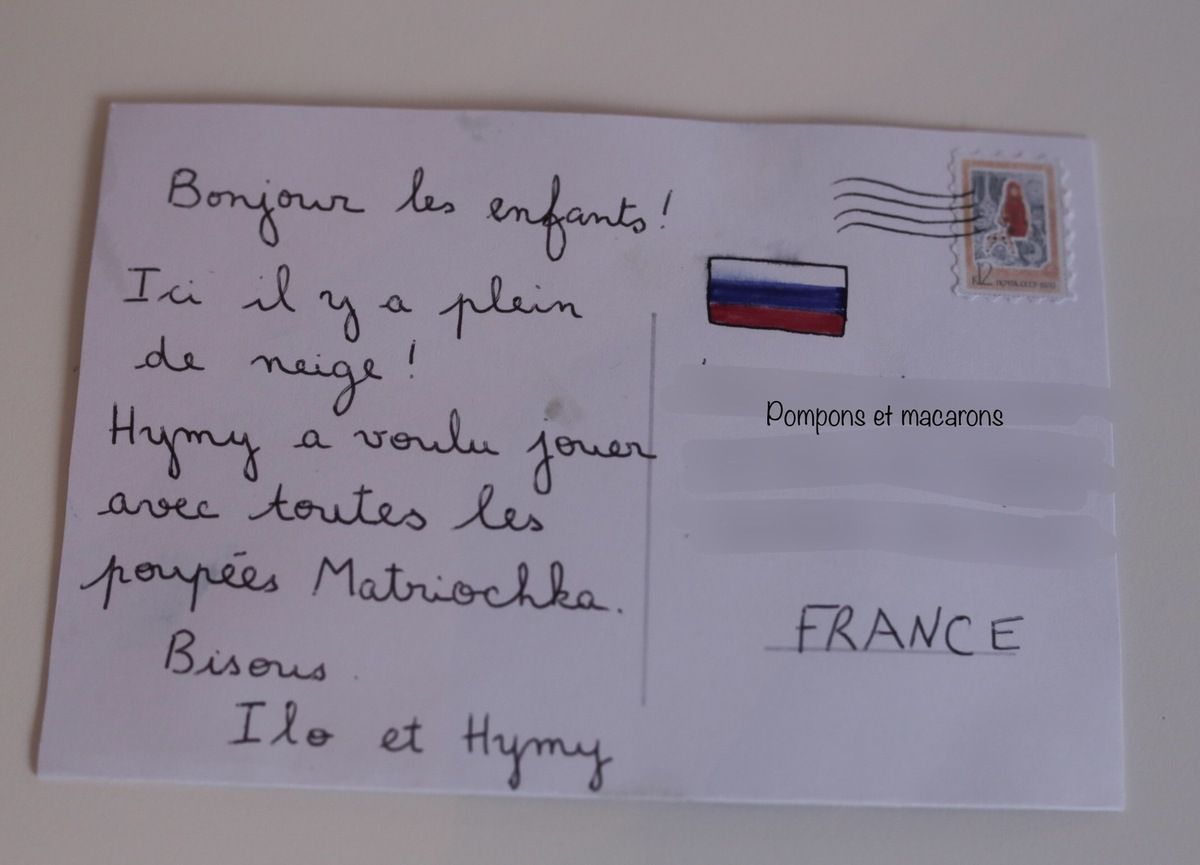 Bonjour les enfants!
Ici il y a plein
de neige!
Hymy a voulu jouer
avec toutes les
poupées Matriochka.
Bisous.
Ilo et Hymy
Pompons et macarons
FRANCE
12